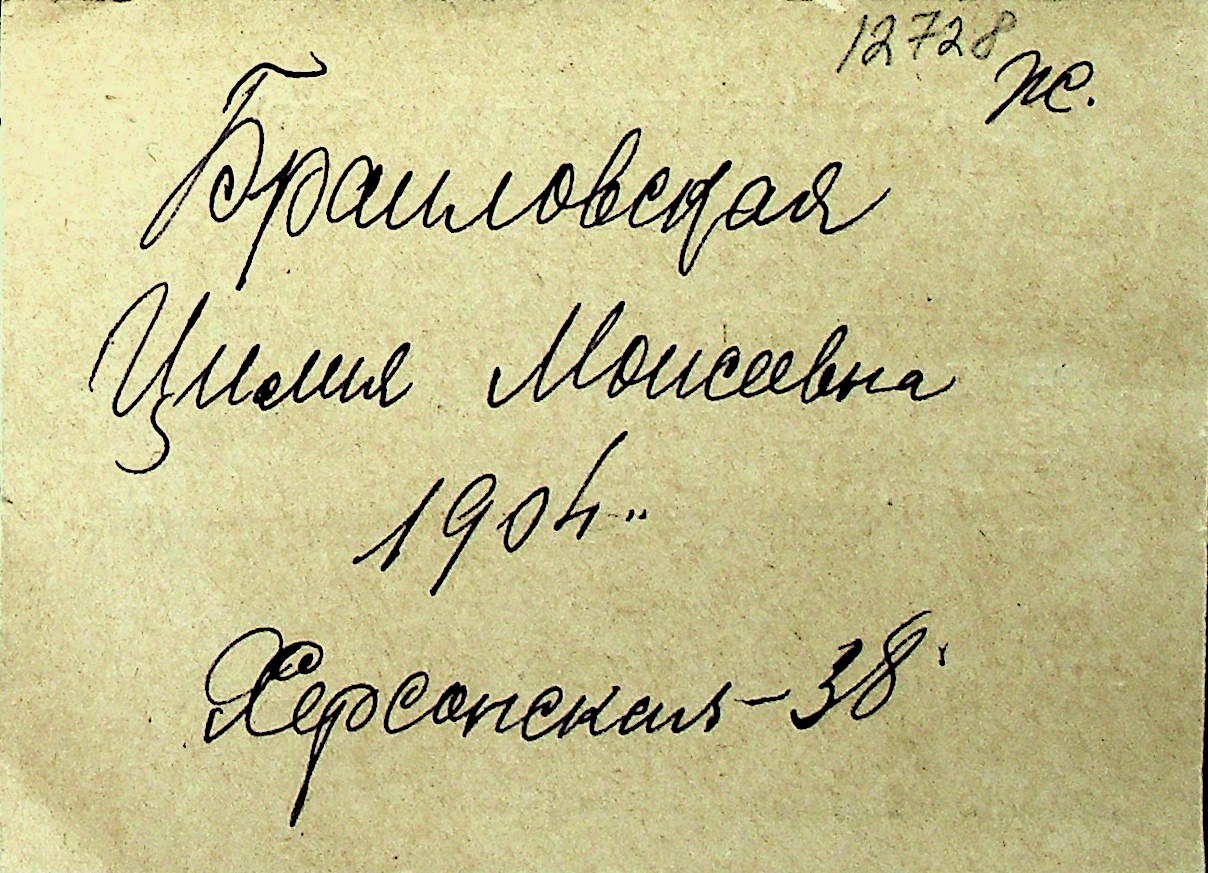 12728
ж.
Браиловская
Цилия Моисеевна
1904"
Херсонская-38